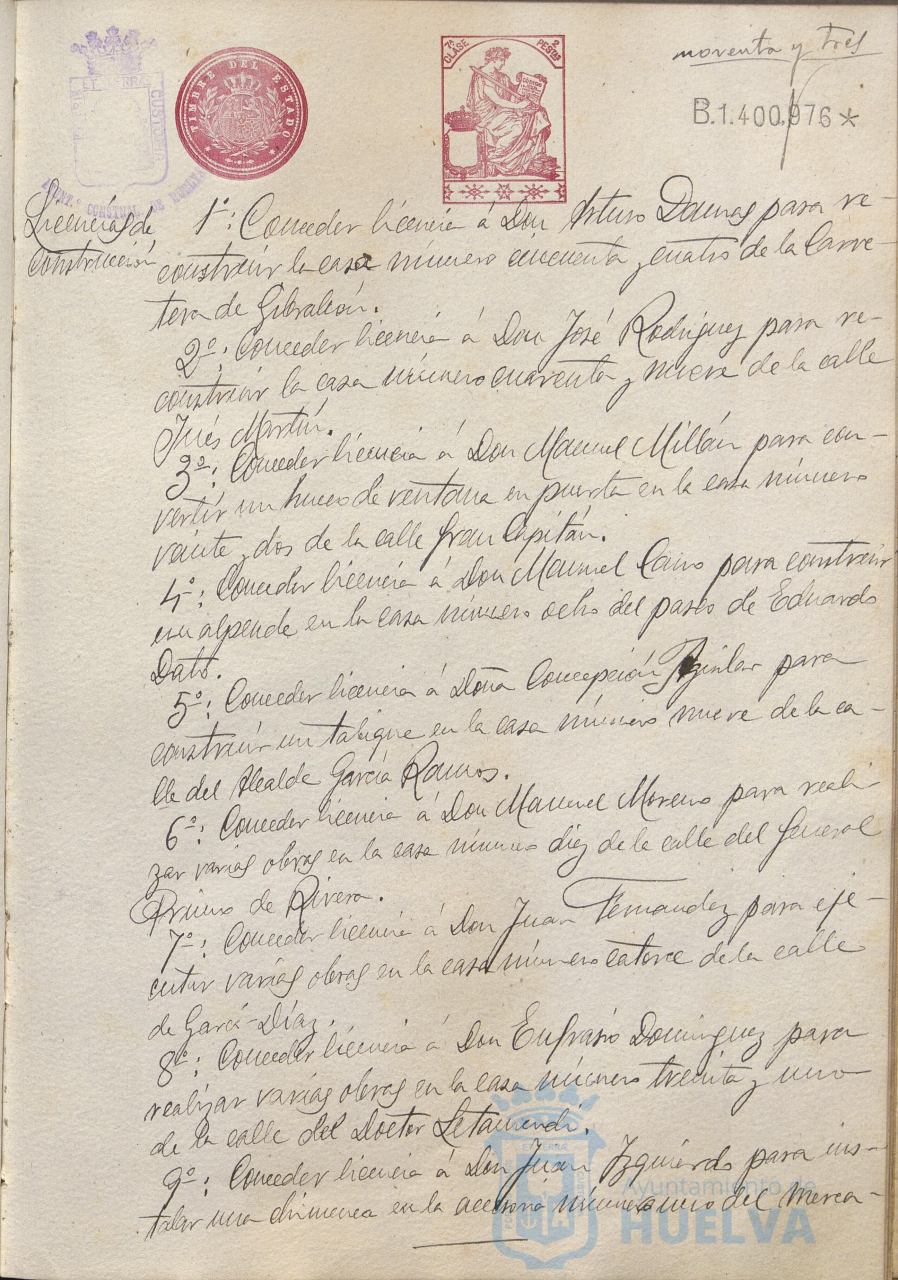 noventa y tres
TIMBRE DEL ESTADO
7ª CLASE
2 PESETAS
B.1.400.976*
Licencias de
construcción
1º: Conceder licencia á Don Arturo Damas para re-
construir la casa número cincuenta y cuatro de la Carre-
tera de Gibraleón.
2º: Conceder licencia á Don José Rodríguez para re-
construir la casa número cuarenta y nueve de la calle
Inés Martín.
3º: Conceder licencia á Don Manuel Millán para con-
vertir un hueco de ventana en puerta en la casa número
vainte y dos de la calle Gran Capitán.
4º: Conceder licencia á Don Manuel para construir
un alpende en la casa número ocho del paseo de Eduardo
Dato.
5º: Conceder licencia á Doña Concepción Aguilar para
construir un tabique en la casa número nueve de la ca-
lle del Alcalde García Ramos.
6º: Conceder licencia á Don Manuel Moreno para reali-
zar varias obras en la casa número diez de la calle del General
Primo de Rivera.
7º: Conceder licencia á Don Juan Fernandez para eje-
cutar varias obras en la casa número catorce de la calle
de García-Díaz.
8º: Conceder licencia á Don Eufrasio Dominguez para
realizar varias obras en la casa número treinta y uno
de la calle del Doctor Letamendi.
9º: Conceder licencia á Don Juan Izquierdo para ins-
talar una chimenea en la accesoria número uno del Merca-
Ayuntamiento de
HUELVA